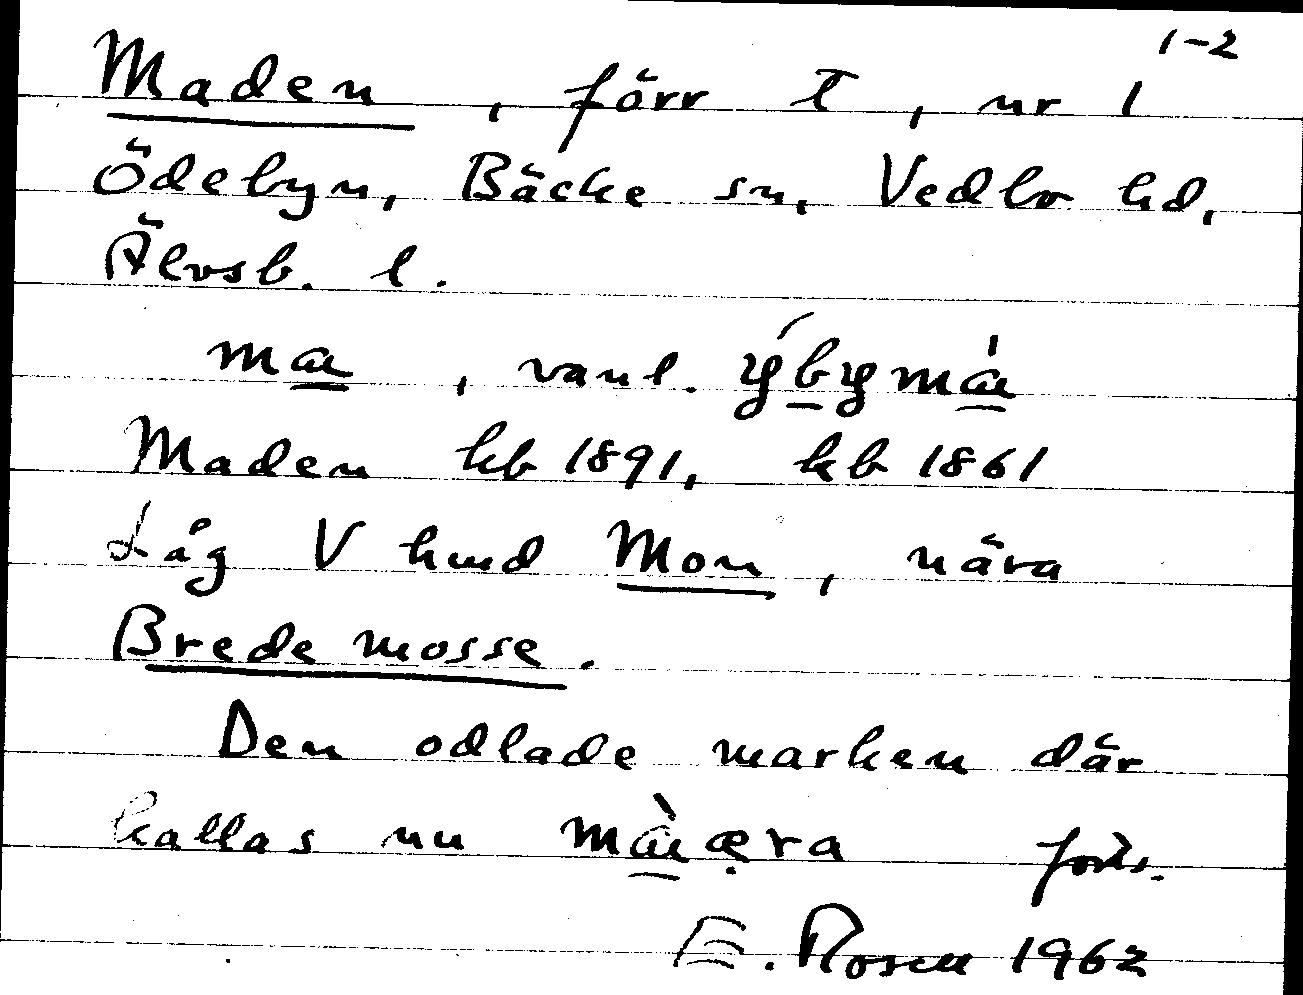 1-2
Maden, förr T, nr 1
Ödebyn, Bäcke sn, Vedbo hd,
Älvsb. l.
ma, vanl.
Maden kb 1891, kb 1861
Låg V hmd Mon, nära
Bredemosse.
Den odlade marken där
kallas nu forts.
E. Rosell 1962